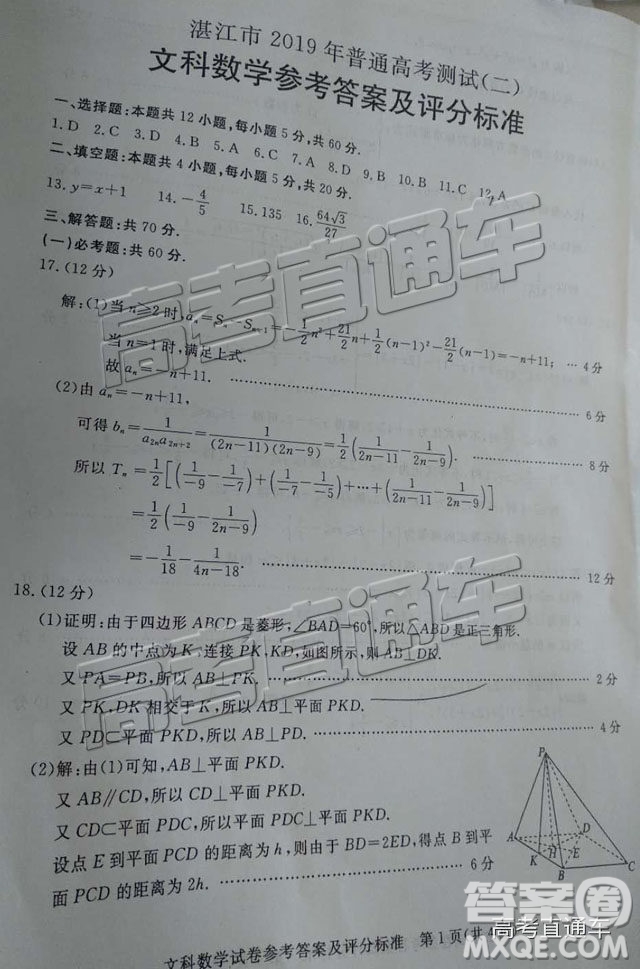 湛江市 2019 年普通高考测试(二)
文科数学参考答案及评分标准
一、选择题:本题共 12 小题,每小题 5 分,共 60 分.
1. D 2. C 3. D 4. B 5. A 6. C 7. A 8. D 9. B 10. C 11. C 12. A
二、填空题:本题共 4 小题,每小题 5 分,共 20 分.
13. y=x+1 14. -4/5 15. 135 16. 64√3/27
三、解答题:共 70 分.
(一)必考题:共 60 分.
17. (12 分)
解:(1)当 n≥2 时, aₙ=Sₙ-Sₙ₋₁=-1/2n²+21/2n+1/2(n-1)²-21/2(n-1)=-n+11; … 4分
当 n=1 时,满足上式.
故 aₙ=-n+11. …… 6分
(2)由 aₙ=-n+11,
可得 bₙ=1/(a₂ₙa₂ₙ₊₂)=1/((2n-11)(2n-9))=1/2(1/(2n-11)-1/(2n-9)). …… 8分
所以 Tₙ=1/2[(1/-9-1/-7)+(1/-7-1/-5)+…+(1/(2n-11)-1/(2n-9))]
=1/2(1/-9-1/(2n-9))
=-1/18-1/(4n-18). …… 12分
18. (12 分)
(1)证明:由于四边形 ABCD 是菱形,∠BAD=60°,所以△ABD 是正三角形.
设 AB 的中点为 K,连接 PK,DK,如图所示,则 AB⊥DK.
又 PA=PB,所以 AB⊥PK. …… 2分
又 PK,DK 相交于 K,所以 AB⊥平面 PKD.
又 PD⊂平面 PKD,所以 AB⊥PD. …… 4分
(2)解:由(1)可知,AB⊥平面 PKD.
又 AB∥CD,所以 CD⊥平面 PKD.
又 CD⊂平面 PDC,所以平面 PDC⊥平面 PKD.
设点 E 到平面 PCD 的距离为 h,则由于 BD=2ED,得点 B 到平
面 PCD 的距离为 2h. …… 6分
P
A
D
K
H
E
B
C
文科数学试卷参考答案及评分标准 第 1 页(共 4
高考直通车
高考直通车
高考直通车
答案圈
MXQE.COM